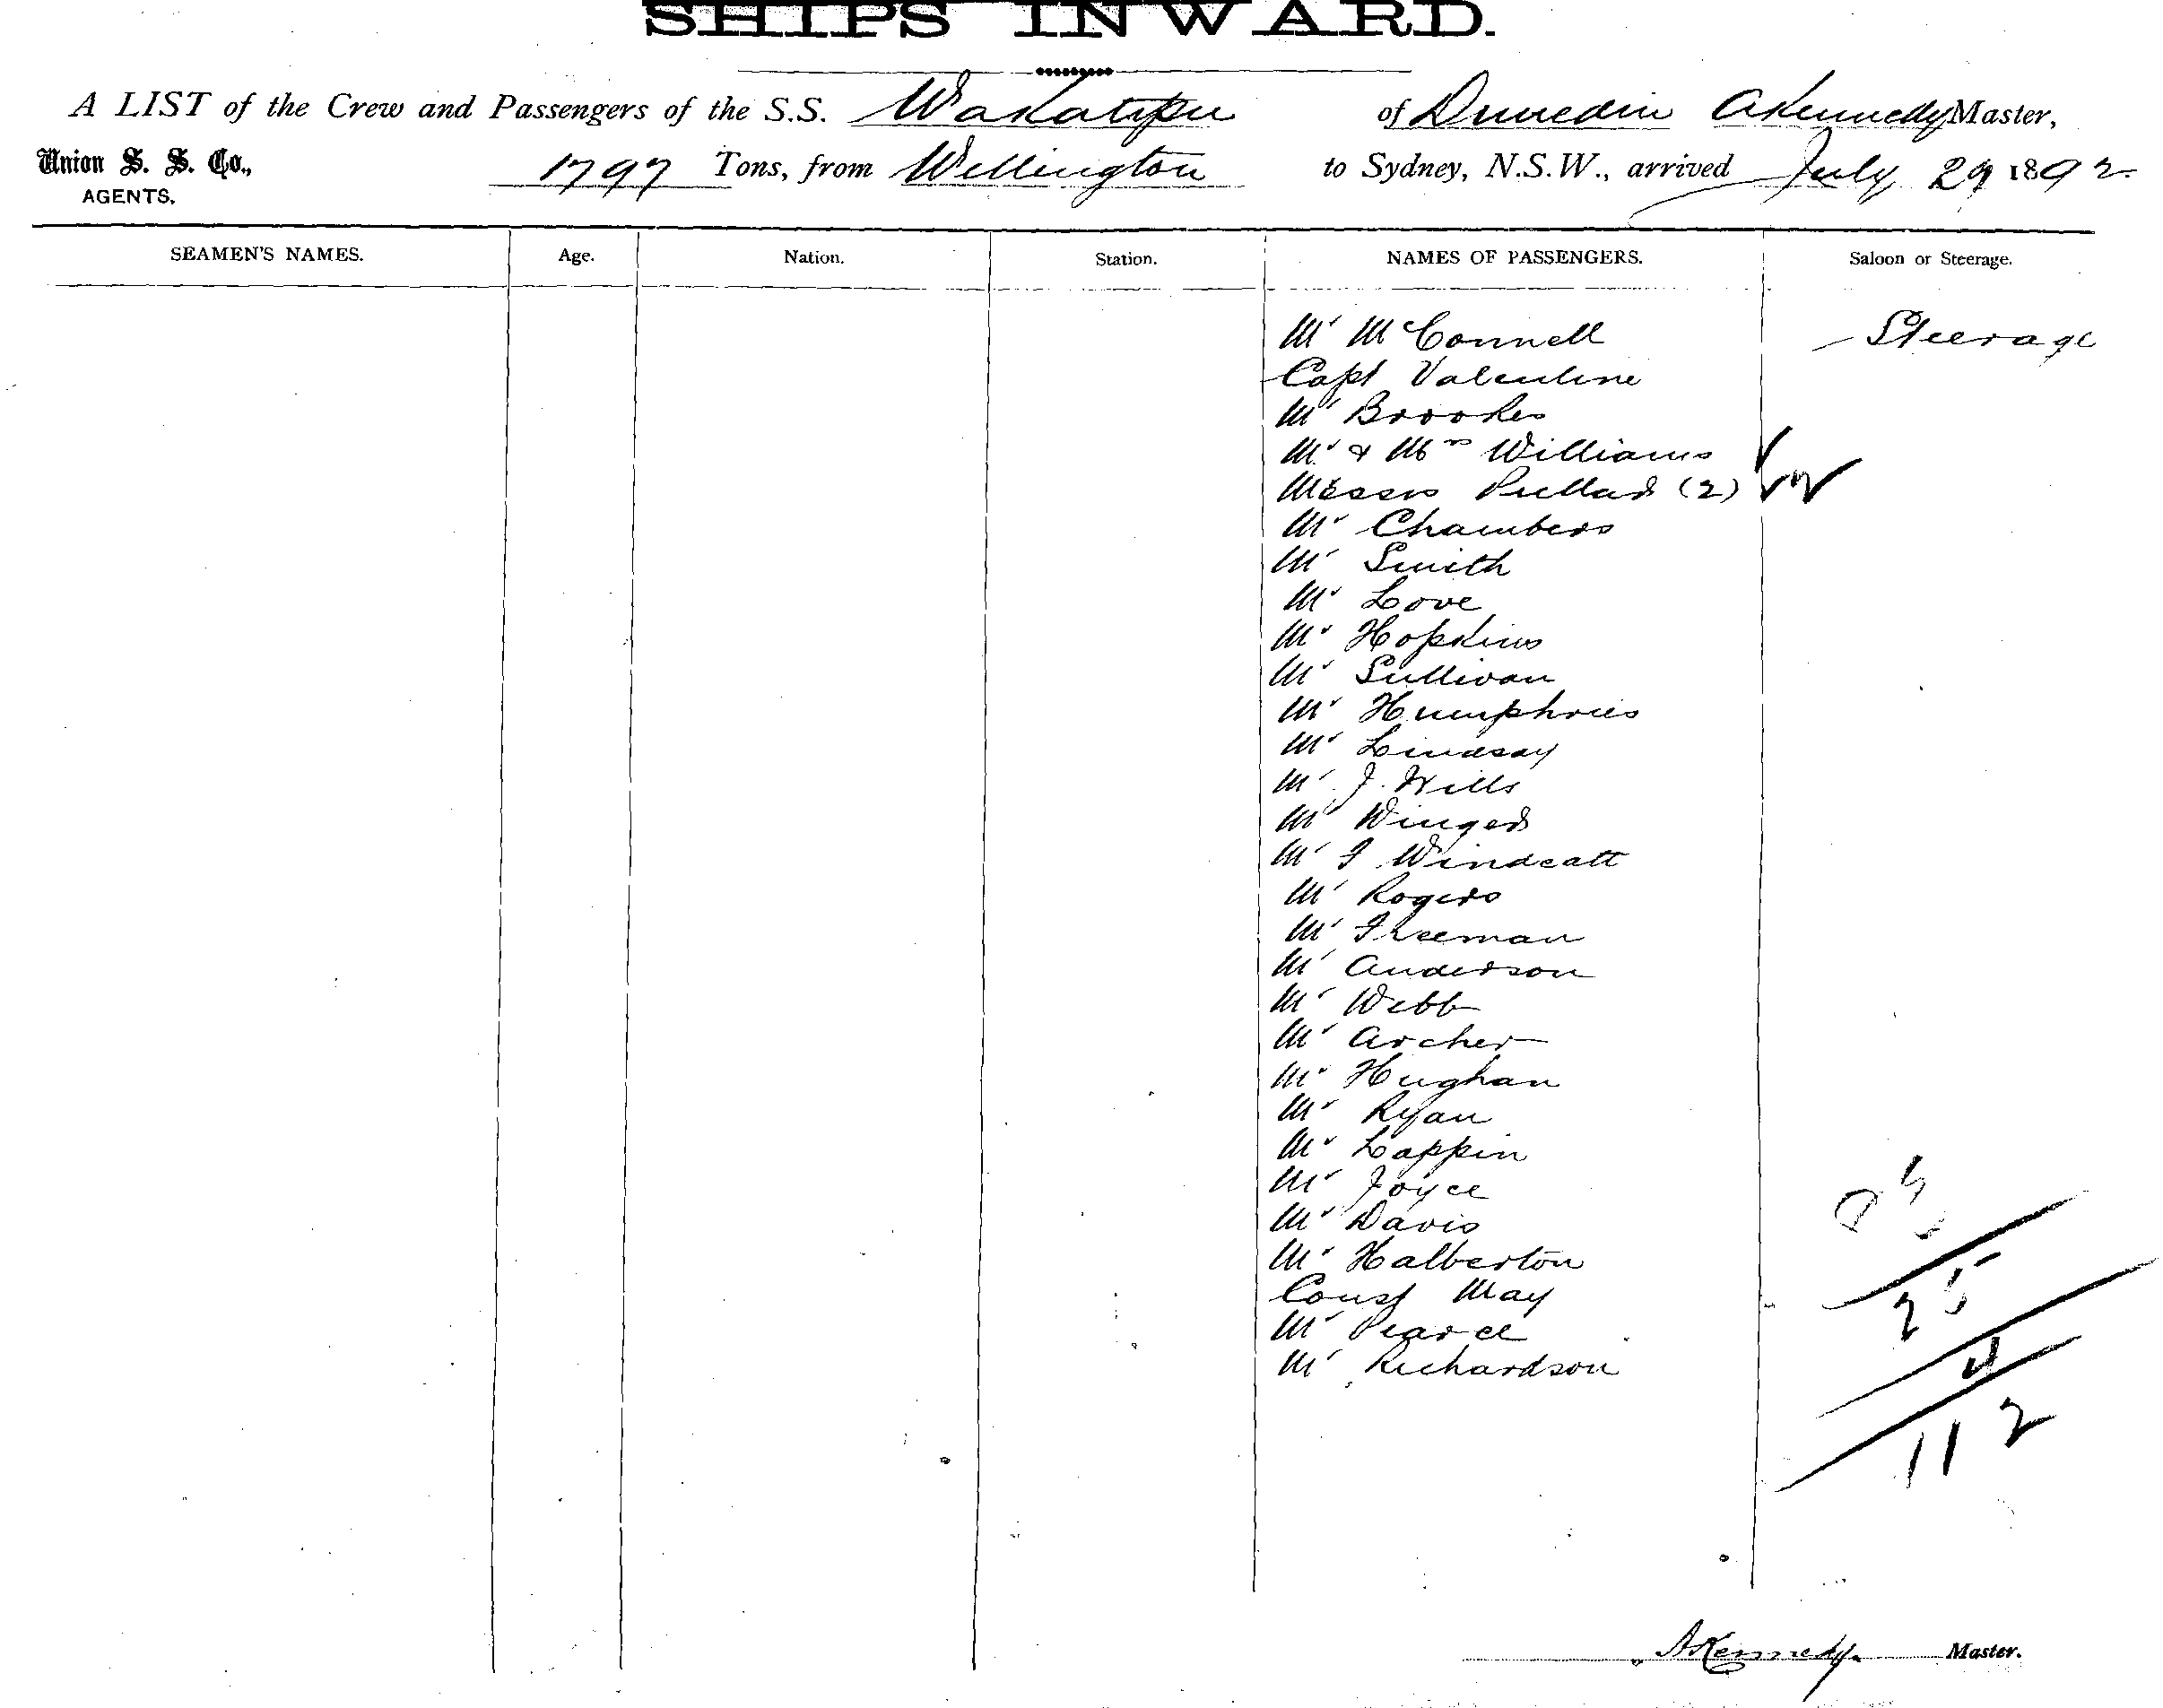 SHIPS INWARD.
A LIST of the Crew and Passengers of the S.S. Wakatipu of Dunedin AKennedy Master,
Union S. S. Co., 1797 Tons, from Wellington to Sydney, N.S.W., arrived July 29 1892
AGENTS.
SEAMEN'S NAMES. Age. Nation. Station. NAMES OF PASSENGERS. Saloon or Steerage.
Mr McConnell Steerage
Capt Valentine
Mr Brookes
Mr & Mrs Williams
Messrs Pullar (2)
Mr Chambers
Mr Smith
Mr Love
Mr Hopkins
Mr Sullivan
Mr Humphries
Mr Lindsay
Mr J. Wills
Mr Winger
Mr F Windeatt
Mr Rogers
Mr Freeman
Mr Anderson
Mr Webb
Mr Archer
Mr Hughan
Mr Ryan
Mr Lappin
Mr Joyce
Mr Davis
Mr Halberton
Const May
Mr Pearce
Mr Richardson
25
112
AKennedy Master.